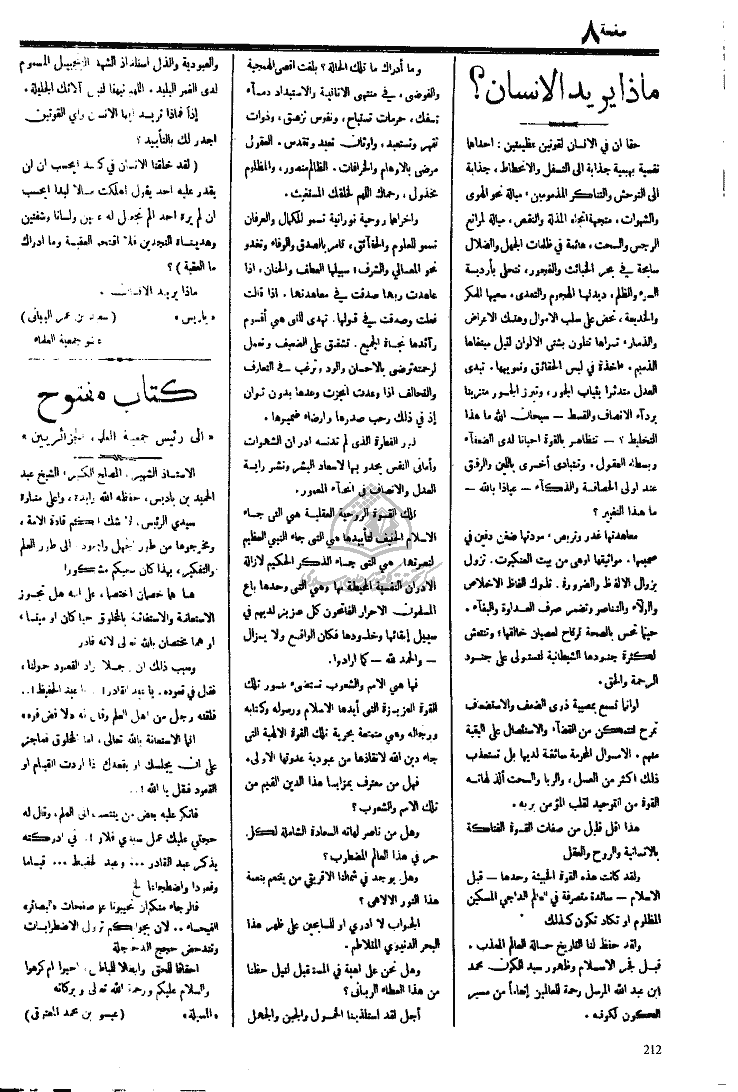 صفحة ٨
ماذا يريد الانسان؟
حقا ان في الانسان لقوتين عظيمتين : احداهما
نفسية بهيمية جذابة الى التسفل والانحطاط، جذابة
الى التوحش والتناكر المذمومين، ميالة نحو الهوى
والشهوات، متجهة اتجاه المذلة والنقص، ميالة لمراتع
الرجس والسحت، هائمة في ظلمات الجهل والضلال
سابحة في بحر الخبائث والفجور، تتحلى بأردية
السوء والظلم، ديدنها الهجوم والتعدى، سعيها المكر
والخديعة، تحض على سلب الاموال وهتك الاعراض
والدماء، تراها تتلون بشتى الالوان لنيل مبتغاها
الذميم، ماخذة في لبس الحقائق وتمويهها، تبدى
العدل متدثرا بثياب الجور، وتبرز الجور متزينا
بردآء الانصاف والقسط — سبحان الله ما هذا
التخليط؟ — تتظاهر بالقوة احيانا لدى الضعفآء
وبسطاء العقول، وتتبادى أخسرى باللين والرفق
عند اولى الحصافة والذكآء — عياذا بالله —
ما هذا التغيير؟
معاهدتها غدر وتربص، مودتها ضغن دفين في
صميمها، مواثيقها اوهى من بيت العنكبوت، تزول
بزوال الالفاظ والضرورة، تلوك الفاظ الاخلاص
والولآء والتناصر وتضمر صرف العداوة والبغآء،
حينما تحس بالصحة ترتاح لعصيان خالقها، وتنتعش
لكثرة جنودها الشيطانية لتستولى على جنود
الرحمة والحق،
اوانا تسع بمصيبة ذوى الضعف والاستضعاف
تمرح لتتمكن من القضآء والاستئصال على البقية
منهم، الاموال المحرمة سائغة لديها بل تستعذب
ذلك اكثر من العسل، والربا والسحت ألذ لهاته
القوة من التوحيد لقلب المؤمن بربه،
هذا اقل قليل من صفات القسوة الفتاكة
بالانسانية والروح والعقل
ولقد كانت هذه القوة الخبيثة وحدها — قبل
الاسلام — سائدة متصرفة في العالم الداجي المسكين
المظلوم او تكاد تكون كذلك
ولقد حفظ لنا التاريخ حالة العالم المعذب،
قبل فجر الاسلام وظهور سيد الكون محمد
ابن عبد الله المرسل رحمة للعالمين إنعاماً من مسير
الكون لكونه،
وما أدراك ما تلك الحالة؟ بلغت اقصى الهمجية
والفوضى، في منتهى الانانية والاستبداد دمآء
تسفك، حرمات تستباح، ونفوس تزهق، وذوات
تقهر وتستعبد، واوثان تعبد وتقدس، العقول
مرضى بالاوهام والخرافات، الظالم منصور، والمظلوم
مخذول، رحماك اللهم لخلقك المستغيث،
واخراها روحية نورانية تسمو للكمال والعرفان
تسمو للعلوم والحقآئق، تامر بالصدق والوفاء وتغدو
نحو المعالي والشرف، سبيلها العطف والحنان، اذا
عاهدت ربها صدقت في معاهدتها، اذا قالت
فعلت وصدقت في قولها، تهدى للتى هي أقوم
رآئدها نجاة الجميع، تشفق على الضعيف وتعمل
لرحمته ترضى بالاحسان والود، ترغب في التعارف
والتحالف اذا وعدت انجزت وعدها بدون توان
إذ في ذلك رحب صدرها وارضاء ضميرها،
نور الفطرة الذى لم تدنسه ادران الشهوات
وأمانى النفس يحدو بها لاسعاد البشر ونشر راية
العدل والانصاف في انحآء المعمور،
تلك القسوة الروحية العقلية هي التى جاء
الاسلام الحنيف لتأييدها هي التى جاء النبي العظيم
لنصرتها، هي التى جاء الذكر الحكيم لازالة
الادران النفسية المحيطة بها وهي التى وحدها باع
المسلمون الاحرار الفاتحون كل عزيز لديهم في
سبيل إبقائها وخلودها فكان الواقع ولا يزال
— والحمد لله — كما ارادوا،
فها هي الامم والشعوب تستضيء بنور تلك
القوة العزيزة التى أيدها الاسلام ورسوله وكتابه
ورجاله وهي متمتعة بحرية تلك القوة الالهية التى
جاء دين الله لانقاذها من عبودية عدوتها الاولى،
فهل من معترف بمزايا هذا الدين القيم من
تلك الامم والشعوب؟
وهل من ناصر لهاته السعادة الشاملة لكل
حر في هذا العالم المضطرب؟
وهل يوجد في شمالنا الافريقي من يقتسم بنعمة
هذا النور الالاهى؟
الجواب لا ادرى او للسابحين على ظهر هذا
البحر الدنيوى المتلاطم،
وهل نحن على اهبة في المستقبل لنيل حظنا
من هذا العطاء الربانى؟
أجل لقد استلذينا الخمول والجبن والجهل
والعبودية والذل استلذاذ الشهد الزنجبيل المسموم
لدى الغمر البليد، اللهم نبهنا لنيل آلائك الجليلة،
إذاً فماذا تريد ايها الانسان واي القوتين
اجدر لك بالتأييد؟
( لقد خلقنا الانسان في كبد ايحسب ان لن
يقدر عليه احد يقول اهلكت مالا لبدا ايحسب
ان لم يره احد الم نجعل له عينين ولسانا وشفتين
وهديناه النجدين فلا اقتحم العقبة وما ادراك
ما العقبة )؟
ماذا يريد الانسان،
« باريس » ( سعيد بن عمر البيبانى )
عضو جمعية العلماء
كتاب مفتوح
« الى رئيس جمعية العلماء الجزائريين »
الاستاذ الشهير، المصلح الكبير، الشيخ عبد
الحميد بن باديس، حفظه الله وايده، واعلى مناره
سيدي الرئيس، لا شك انكم قادة الامة،
ومخرجوها من طور الجهل والجمود الى طور العلم
والتفكير، بهذا كان سعيكم مشكورا
هــا هما خصمان اختصما، على انه هل تجوز
الاستعانة والاستغاثة بالمخلوق حيا كان او ميتاء،
او هما مختصان بالله تعالى لانه قادر
وسبب ذلك ان رجلا اراد القعود حولنا،
فقال في قعوده، يا عبد القادر !.. يا عبد الحفيظ !..
فلقنه رجل من اهل العلم وقال له « لا تض قوه »
انما الاستعانة بالله تعالى، اما المخلوق فعاجز
على ان يجلسك او يقعدك اذا اردت القيام او
القعود فقل يا الله !..
فانكر عليه بعض من ينتسب الى العلم، وقال له
حجتي عليك عمل سيدي فلان !. فى ادركته
يذكر عبد القادر ... وعبد الحفيظ ... قياما
وقعودا واضطجاعا الخ
فالرجاء منكم ان تجيبونا على صفحات « البصائر »
الفيحاء .. لان بجوابكم تزول الاضطرابات
وتندحض حجج الدجاجلة
احقاقا للحق وابطالا للباطل، احبوا ام كرهوا
والسلام عليكم ورحمة الله تعالى وبركاته
« المسيلة » ( عيسى بن محمد المعتوقى )
212